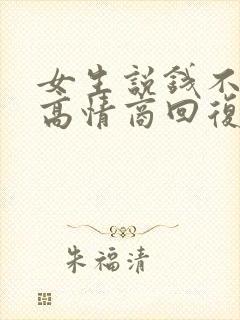 女生説錢不
高情商回復
朱福清